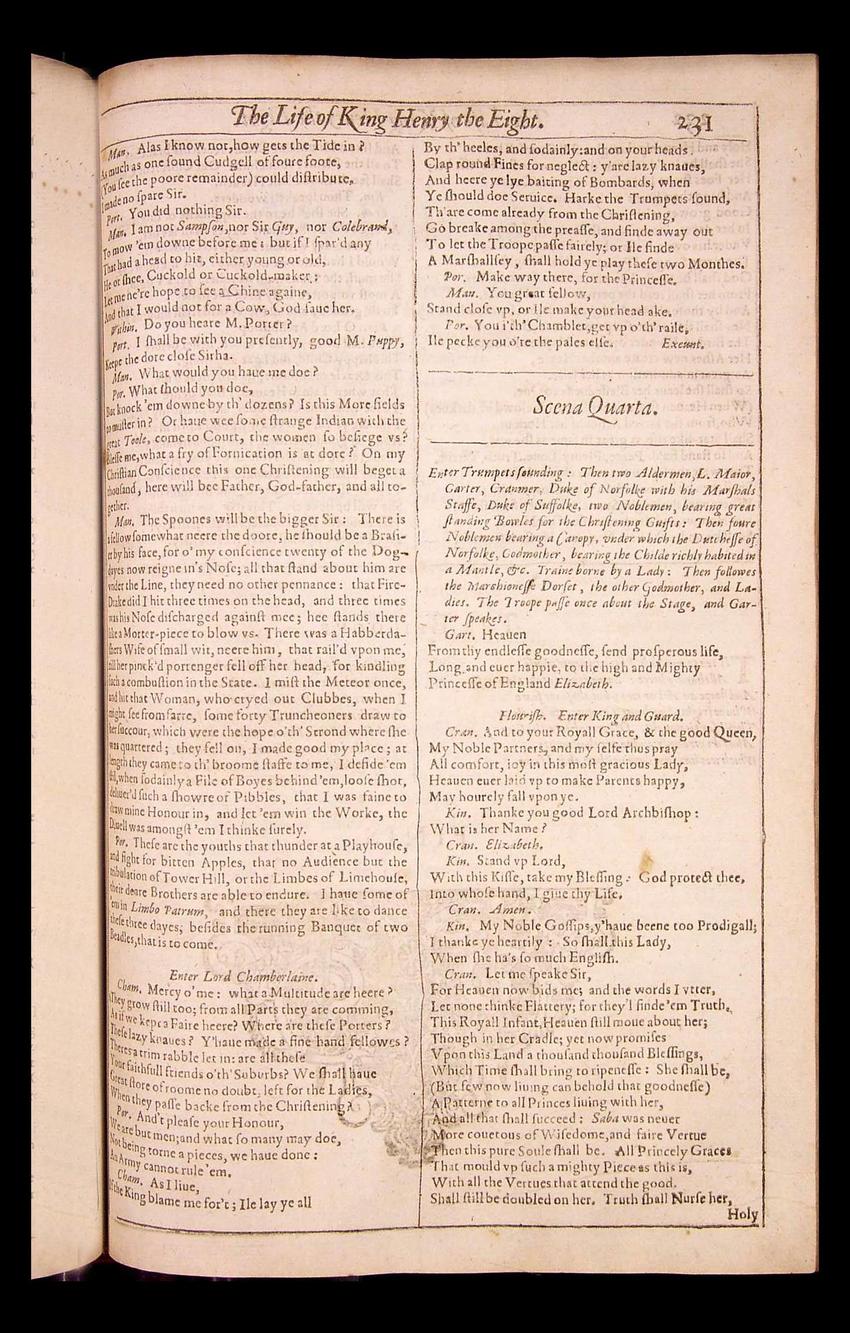 The Life of King Henry the Eight. 231
Man. Alas I know not, how gets the Tide in?
As much as one sound Cudgell of foure foote,
(You see the poore remainder) could distribute,
I made no spare Sir.
Port. You did nothing Sir.
Man. I am not Sampson, nor Sir Guy, nor Colebrand,
To mow 'em downe before me: but if I spar'd any
That had a head to hit, either young or old,
He or shee, Cuckold or Cuckold-maker:
Let me ne're hope to see a Chine againe,
And that I would not for a Cow, God saue her.
Within. Do you heare M. Porter?
Port. I shall be with you presently, good M. Puppy,
Keepe the dore close Sirha.
Man. What would you haue me doe?
Por. What should you doe,
But knock 'em downe by th' dozens? Is this More fields
to muster in? Or haue wee some strange Indian with the
great Toole, come to Court, the women so besiege vs?
Blesse me, what a fry of Fornication is at dore? On my
Christian Conscience this one Christening will beget a
thousand, here will bee Father, God-father, and all to-
gether.
Man. The Spoones will be the bigger Sir: There is
a fellow somewhat neere the doore, he should be a Brasi-
er by his face, for o' my conscience twenty of the Dog-
dayes now reigne in's Nose; all that stand about him are
vnder the Line, they need no other pennance: that Fire-
Drake did I hit three times on the head, and three times
was his Nose discharged against mee; hee stands there
like a Morter-piece to blow vs. There was a Habberda-
shers Wife of small wit, neere him, that rail'd vpon me,
till her pinck'd porrenger fell off her head, for kindling
such a combustion in the State. I mist the Meteor once,
and hit that Woman, who cryed out Clubbes, when I
might see from farre, some forty Truncheoners draw to
her succour, which were the hope o'th' Strond where she
was quartered; they fell on, I made good my place; at
length they came to th' broome staffe to me, I defide 'em
stil, when sodainly a File of Boyes behind 'em, loose shot,
deliuer'd such a showre of Pibbles, that I was faine to
draw mine Honour in, and let 'em win the Worke, the
Diuell was amongst 'em I thinke surely.
Por. These are the youths that thunder at a Playhouse,
and fight for bitten Apples, that no Audience but the
tribulation of Tower Hill, or the Limbes of Limehouse,
their deare Brothers are able to endure. I haue some of
em in Limbo Patrum, and there they are like to dance
these three dayes; besides the running Banquet of two
Beadles, that is to come.
Enter Lord Chamberlaine.
Cham. Mercy o' me: what a Multitude are heere?
They grow still too; from all Parts they are comming,
As if we kept a Faire heere? Where are these Porters?
These lazy knaues? Y'haue made a fine hand fellowes?
Theres a trim rabble let in: are all these
Your faithfull friends o'th' Suburbs? We shall haue
Great store of roome no doubt, left for the Ladies,
When they passe backe from the Christening?
Por. And't please your Honour,
We are but men; and what so many may doe,
Not being torne a pieces, we haue done:
An Army cannot rule 'em.
Cham. As I liue,
If the King blame me for't; Ile lay ye all
By th' heeles, and sodainly: and on your heads
Clap round Fines for neglect: y'are lazy knaues,
And heere ye lye baiting of Bombards, when
Ye should doe Seruice. Harke the Trumpets sound,
Th'are come already from the Christening,
Go breake among the preasse, and finde a way out
To let the Troope passe fairely; or Ile finde
A Marshallsey, shall hold ye play these two Monthes.
Por. Make way there, for the Princesse.
Man. You great fellow,
Stand close vp, or Ile make your head ake.
Por. You i'th' Chamblet, get vp o'th' raile,
Ile pecke you o're the pales else. Exeunt.
Scena Quarta.
Enter Trumpets sounding: Then two Aldermen, L. Maior,
Garter, Cranmer, Duke of Norfolke with his Marshals
Staffe, Duke of Suffolke, two Noblemen, bearing great
standing Bowles for the Christening Guifts: Then foure
Noblemen bearing a Canopy, vnder which the Dutchesse of
Norfolke, Godmother, bearing the Childe richly habited in
a Mantle, &c. Traine borne by a Lady: Then followes
the Marchionesse Dorset, the other Godmother, and La-
dies. The Troope passe once about the Stage, and Gar-
ter speakes.
Gart. Heauen
From thy endlesse goodnesse, send prosperous life,
Long and euer happie, to the high and Mighty
Princesse of England Elizabeth.
Flourish. Enter King and Guard.
Cran. And to your Royall Grace, & the good Queen,
My Noble Partners, and my selfe thus pray
All comfort, ioy in this most gracious Lady,
Heauen euer laid vp to make Parents happy,
May hourely fall vpon ye.
Kin. Thanke you good Lord Archbishop:
What is her Name?
Cran. Elizabeth.
Kin. Stand vp Lord,
With this Kisse, take my Blessing: God protect thee,
Into whose hand, I giue thy Life.
Cran. Amen.
Kin. My Noble Gossips, y'haue beene too Prodigall;
I thanke ye heartily: So shall this Lady,
When she ha's so much English.
Cran. Let me speake Sir,
For Heauen now bids me; and the words I vtter,
Let none thinke Flattery; for they'l finde 'em Truth.
This Royall Infant, Heauen still moue about her;
Though in her Cradle; yet now promises
Vpon this Land a thousand thousand Blessings,
Which Time shall bring to ripenesse: She shall be,
(But few now liuing can behold that goodnesse)
A Patterne to all Princes liuing with her,
And all that shall succeed: Saba was neuer
More couetous of Wisedome, and faire Vertue
Then this pure Soule shall be. All Princely Graces
That mould vp such a mighty Piece as this is,
With all the Vertues that attend the good,
Shall still be doubled on her. Truth shall Nurse her,
Holy